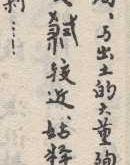 ，与出土的大量殉
接近，姑释
……